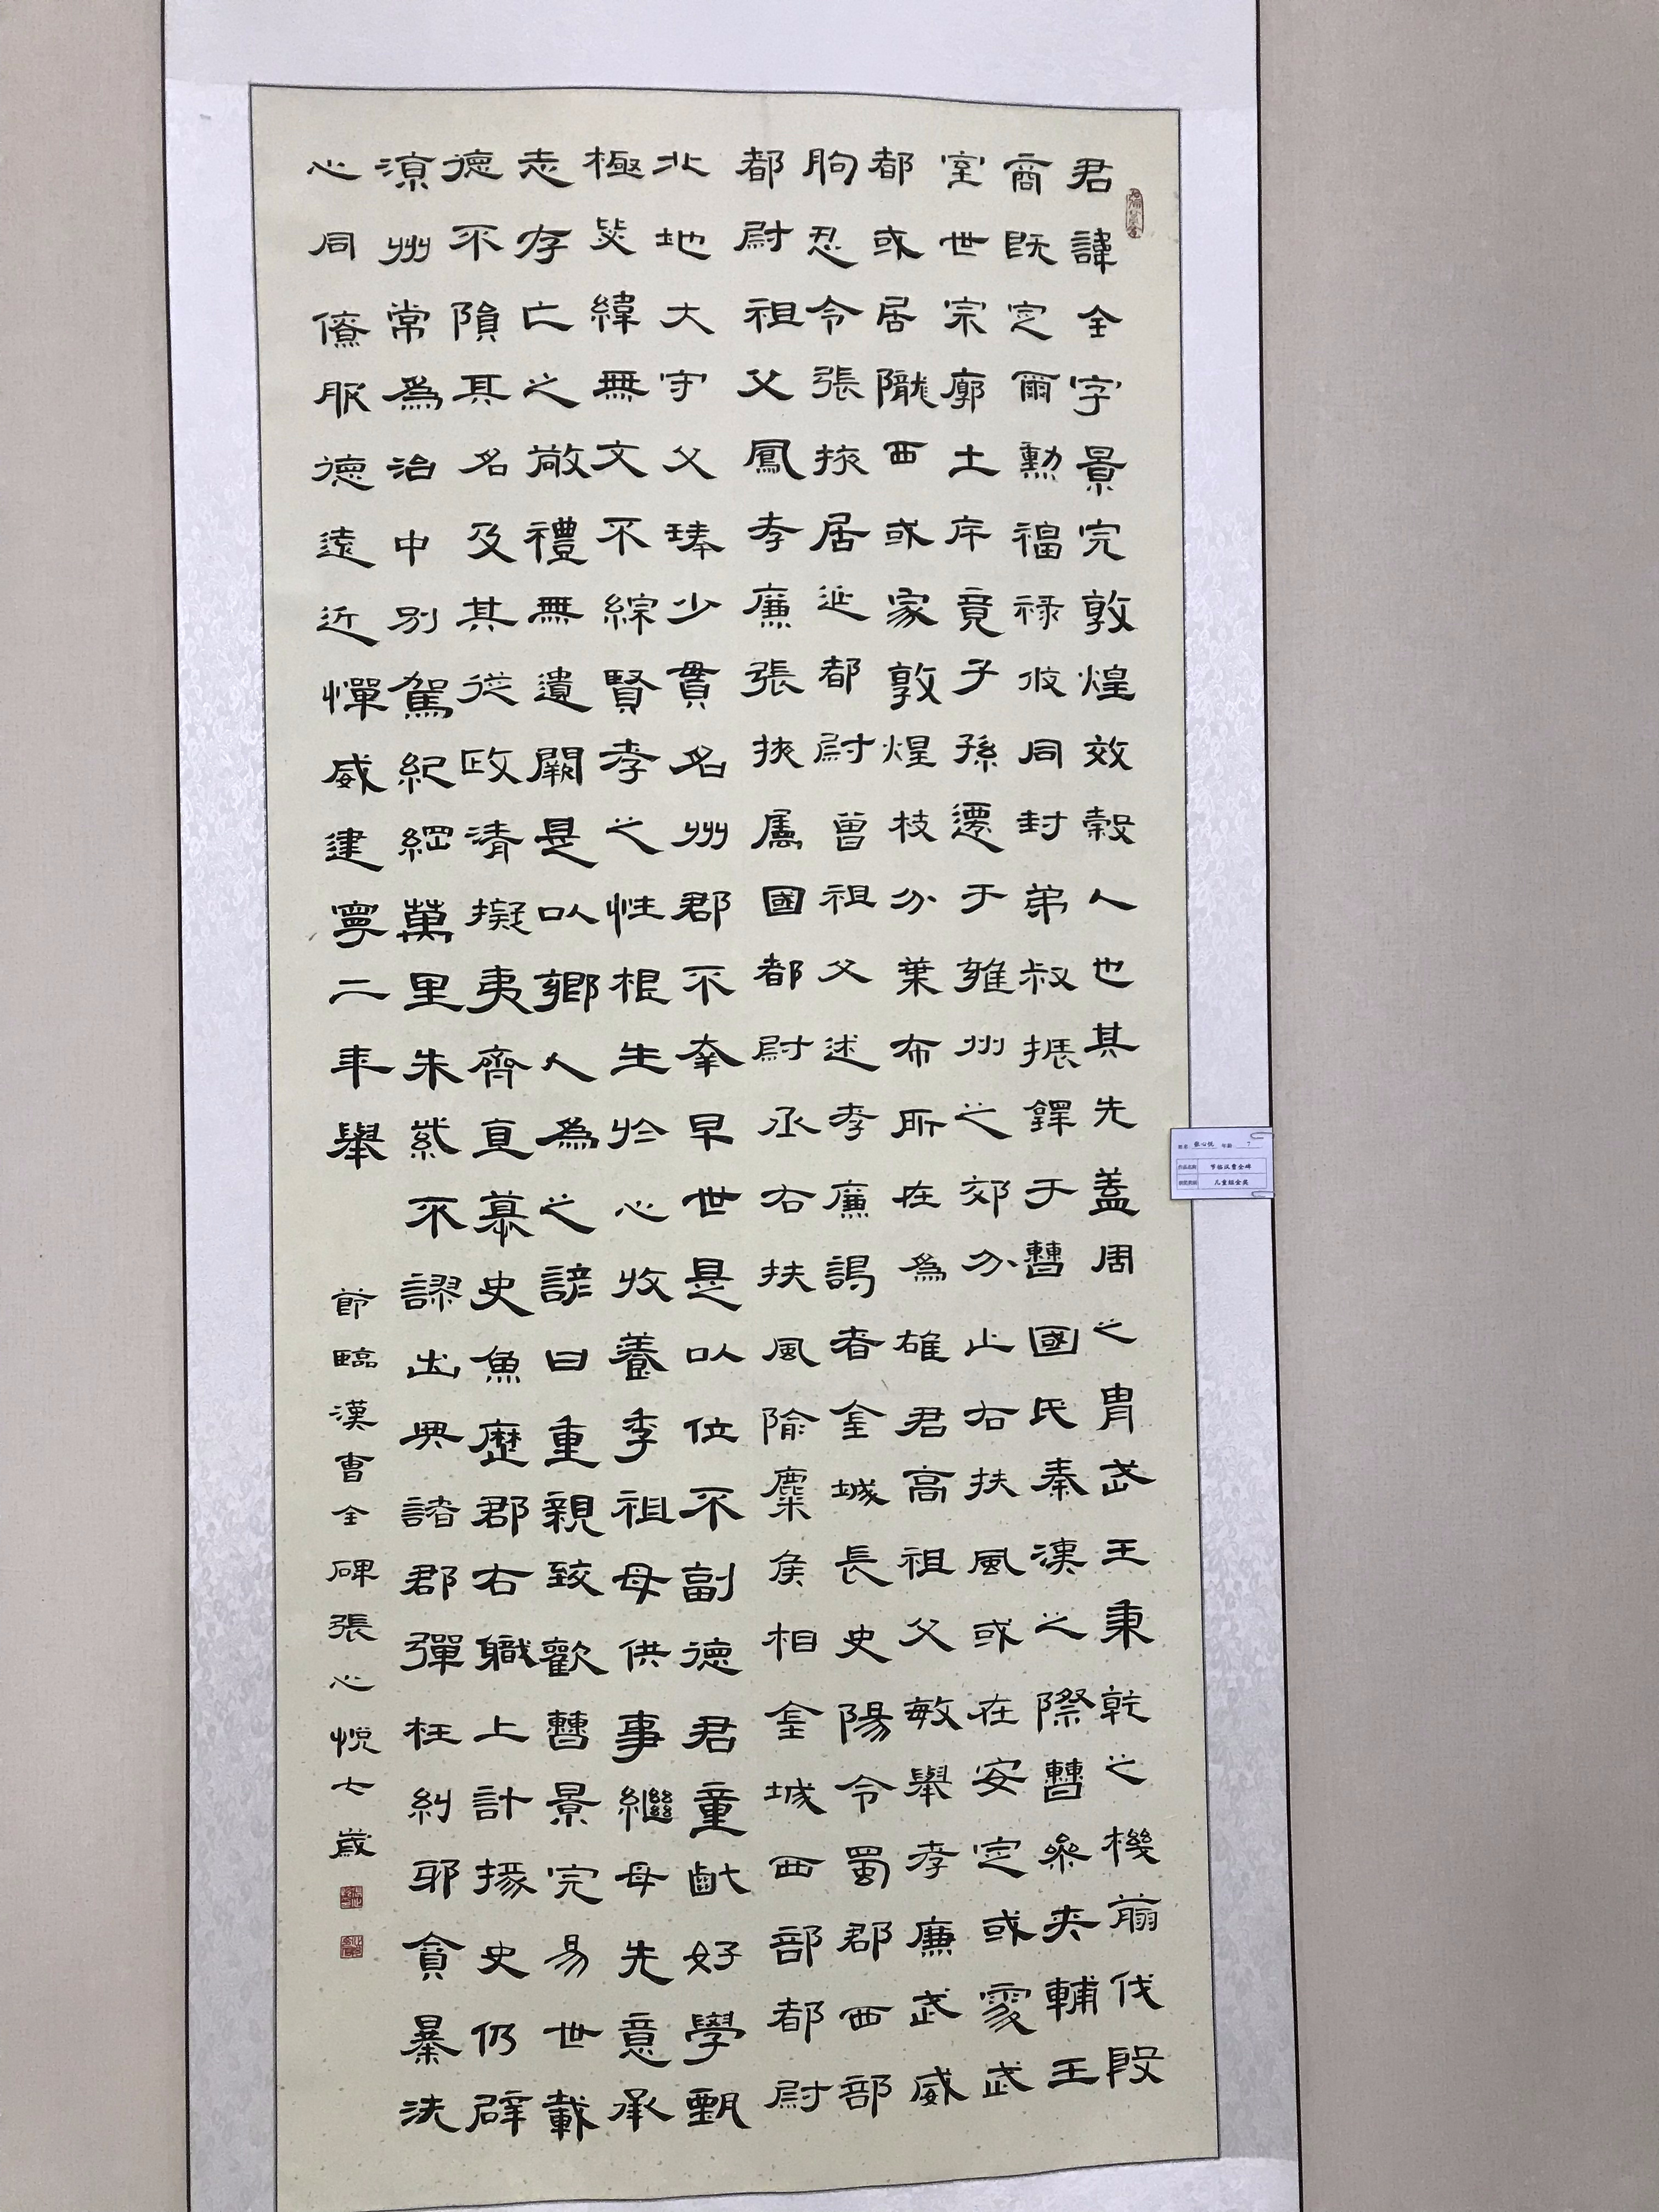 君諱全字景完敦煌效穀人也其先蓋周之胄武王秉乾之機翦伐殷
商既定爾勳福禄攸同封弟叔振鐸于曹國氏秦漢之際曹參夾輔王
室世宗廓土斥竟子孫遷于雍州之郊分止右扶風或在安定或處武
都或居隴西或家敦煌枝分葉布所在為雄君高祖父敏舉孝廉武威
朐忍令張掖居延都尉曾祖父述孝廉謁者金城長史陽令蜀郡西部
都尉祖父鳳孝廉張掖屬國都尉丞右扶風隃麋侯相金城西部都尉
北地大守父琫少貫名州郡不幸早世是以位不副德君童齔好學甄
極毖緯無文不綜賢孝之性根生於心收養季祖母供事繼母先意承
志存亡之敬禮無遺闕是以鄉人為之諺曰重親致歡曹景完易世載
德不隕其名及其從政清擬夷齊直慕史魚歷郡右職上計掾史仍辟
涼州常為治中別駕紀綱萬里朱紫不謬出典諸郡彈枉糾邪貪暴洗
心同僚服德遠近憚威建寧二年舉
節臨漢曹全碑張心悅七歲
姓名 张心悦 年龄 7
作品名称 节临汉曹全碑
儿童组金奖